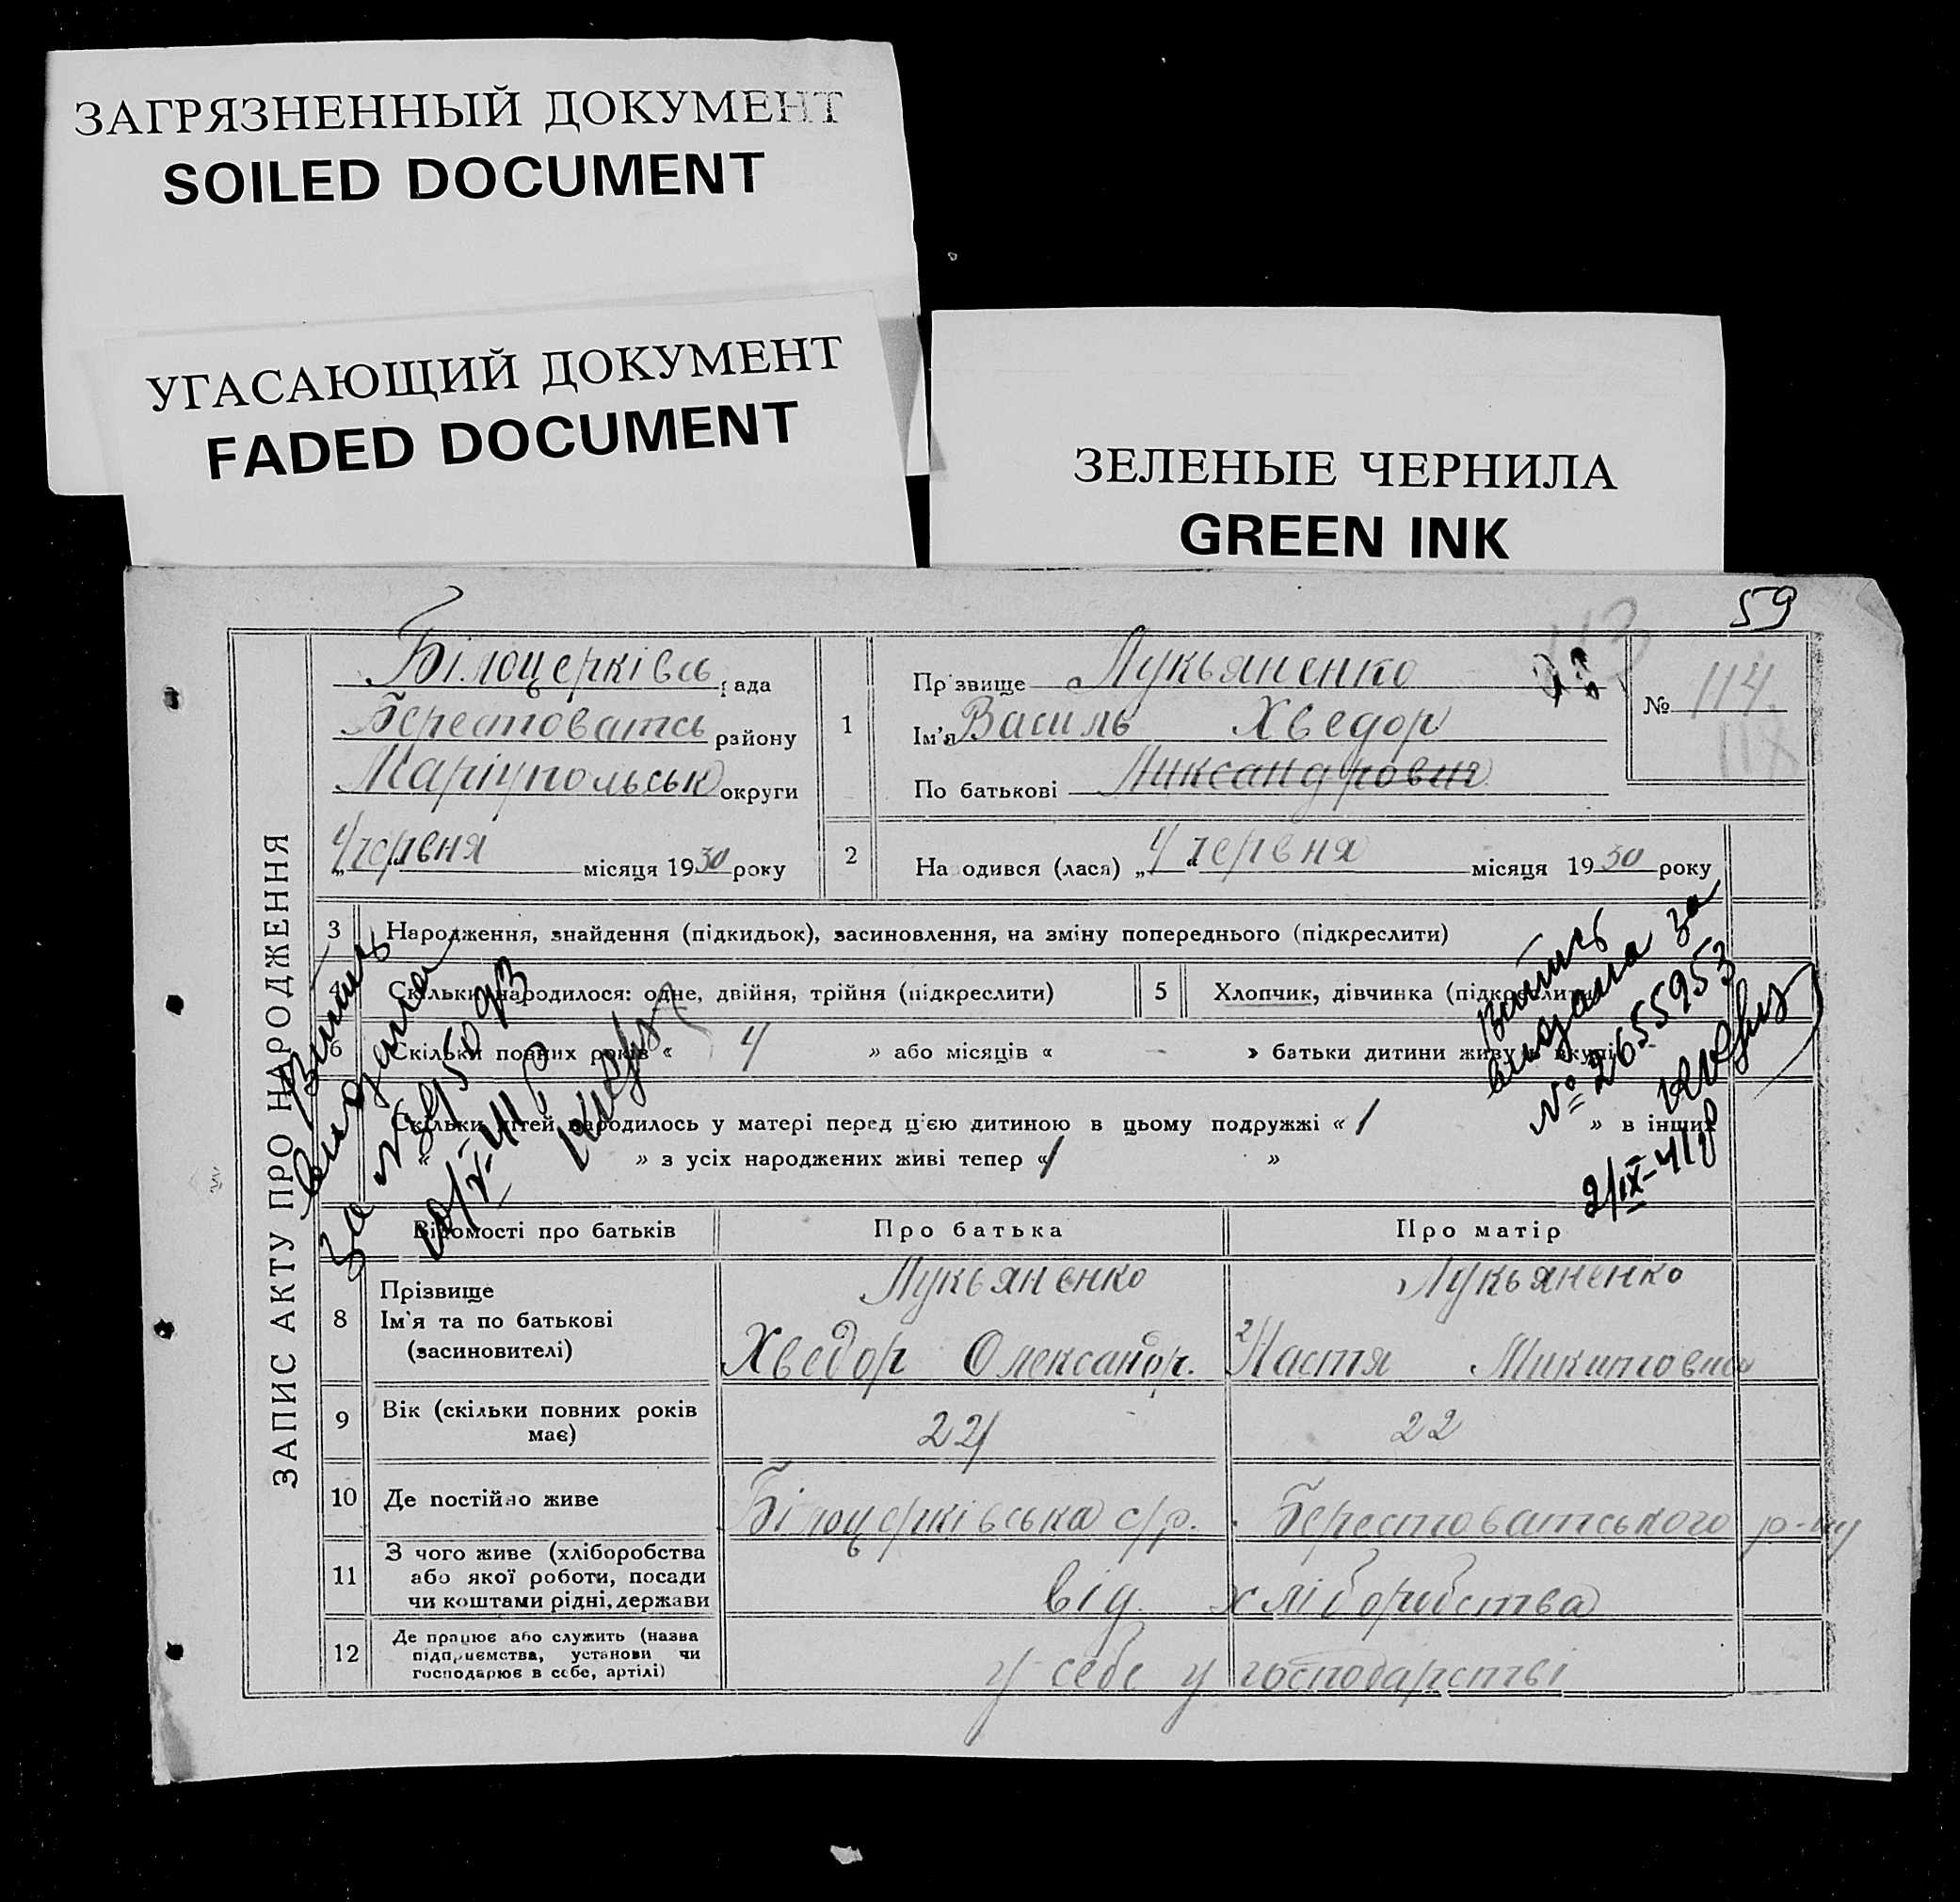 ЗАГРЯЗНЕННЫЙ ДОКУМЕНТ
SOILED DOCUMENT
УГАСАЮЩИЙ ДОКУМЕНТ
FADED DOCUMENT
ЗЕЛЕНЫЕ ЧЕРНИЛА
GREEN INK
59
ЗАПИС АКТУ ПРО НАРОДЖЕННЯ
Білоцерківсь рада
Берестоватсь району
Маріупольськ округи
4 червня місяця 1930 року
1
Прізвище Лукьяненко
Ім'я Василь Хведор
По батькові
№ 114
2
Народився (лася) „4" червня місяця 1930 року
3 Народження, знайдення (підкидьок), засиновлення, на зміну попереднього (підкреслити)
4 Скільки народилося: одне, двійня, трійня (підкреслити)
5 Хлопчик, дівчинка (підкреслити)
6 Скільки повних років « 4 » або місяців « – » батьки дитини живуть вкупі
Скільки дітей народилось у матері перед ц'єю дитиною в цьому подружжі « 1 » в інших
« » з усіх народжених живі тепер « 1 »
Витяг
видана за
№ 2655953
2/ІХ-41р
Витяг
видана
за №
Відомості про батьків Про батька Про матір
8 Прізвище
Ім'я та по батькові
(засиновителі)
Лукьяненко
Хведор Олександр.
Лукьяненко
Настя Микитовна
9 Вік (скільки повних років має) 22 22
10 Де постійно живе Білоцерківська с/р. Берестоватського р-ну
11 З чого живе (хліборобства
або якої роботи, посади
чи коштами рідні, держави
від хліборобства
12 Де працює або служить (назва
підприємства, установи чи
господарює в себе, артілі)
у себе у господарстві